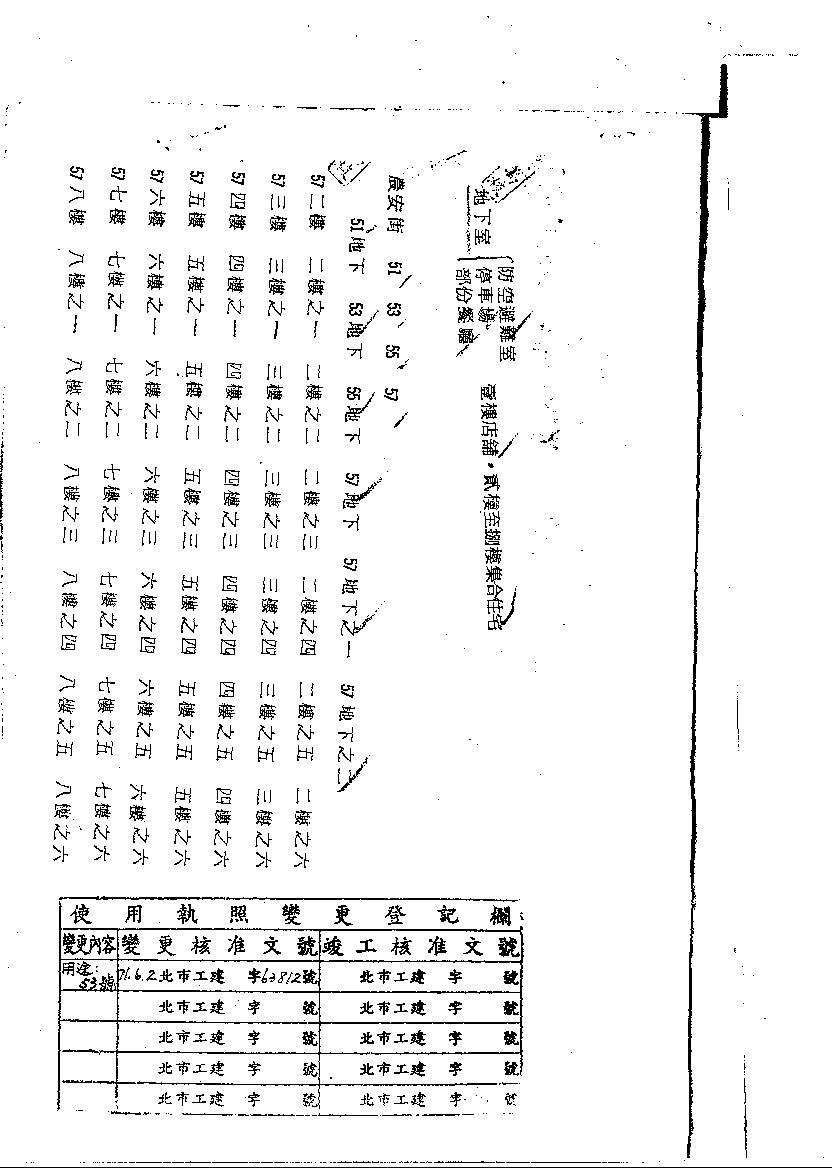 地下室
防空避難室
停車場
部份餐廳
壹樓店舖。貳樓至捌樓集合住宅
農安街 51 53 55 57
51地下 53地下 55地下 57地下 57地下之一 57地下之二
57二樓 二樓之一 二樓之二 二樓之三 二樓之四 二樓之五 二樓之六
57三樓 三樓之一 三樓之二 三樓之三 三樓之四 三樓之五 三樓之六
57四樓 四樓之一 四樓之二 四樓之三 四樓之四 四樓之五 四樓之六
57五樓 五樓之一 五樓之二 五樓之三 五樓之四 五樓之五 五樓之六
57六樓 六樓之一 六樓之二 六樓之三 六樓之四 六樓之五 六樓之六
57七樓 七樓之一 七樓之二 七樓之三 七樓之四 七樓之五 七樓之六
57八樓 八樓之一 八樓之二 八樓之三 八樓之四 八樓之五 八樓之六
使用執照變更登記欄
變更內容 變更核准文號 竣工核准文號
用途: 71.6.2北市工建 字62812號 北市工建 字 號
53號
北市工建 字 號 北市工建 字 號
北市工建 字 號 北市工建 字 號
北市工建 字 號 北市工建 字 號
北市工建 字 號 北市工建 字 號